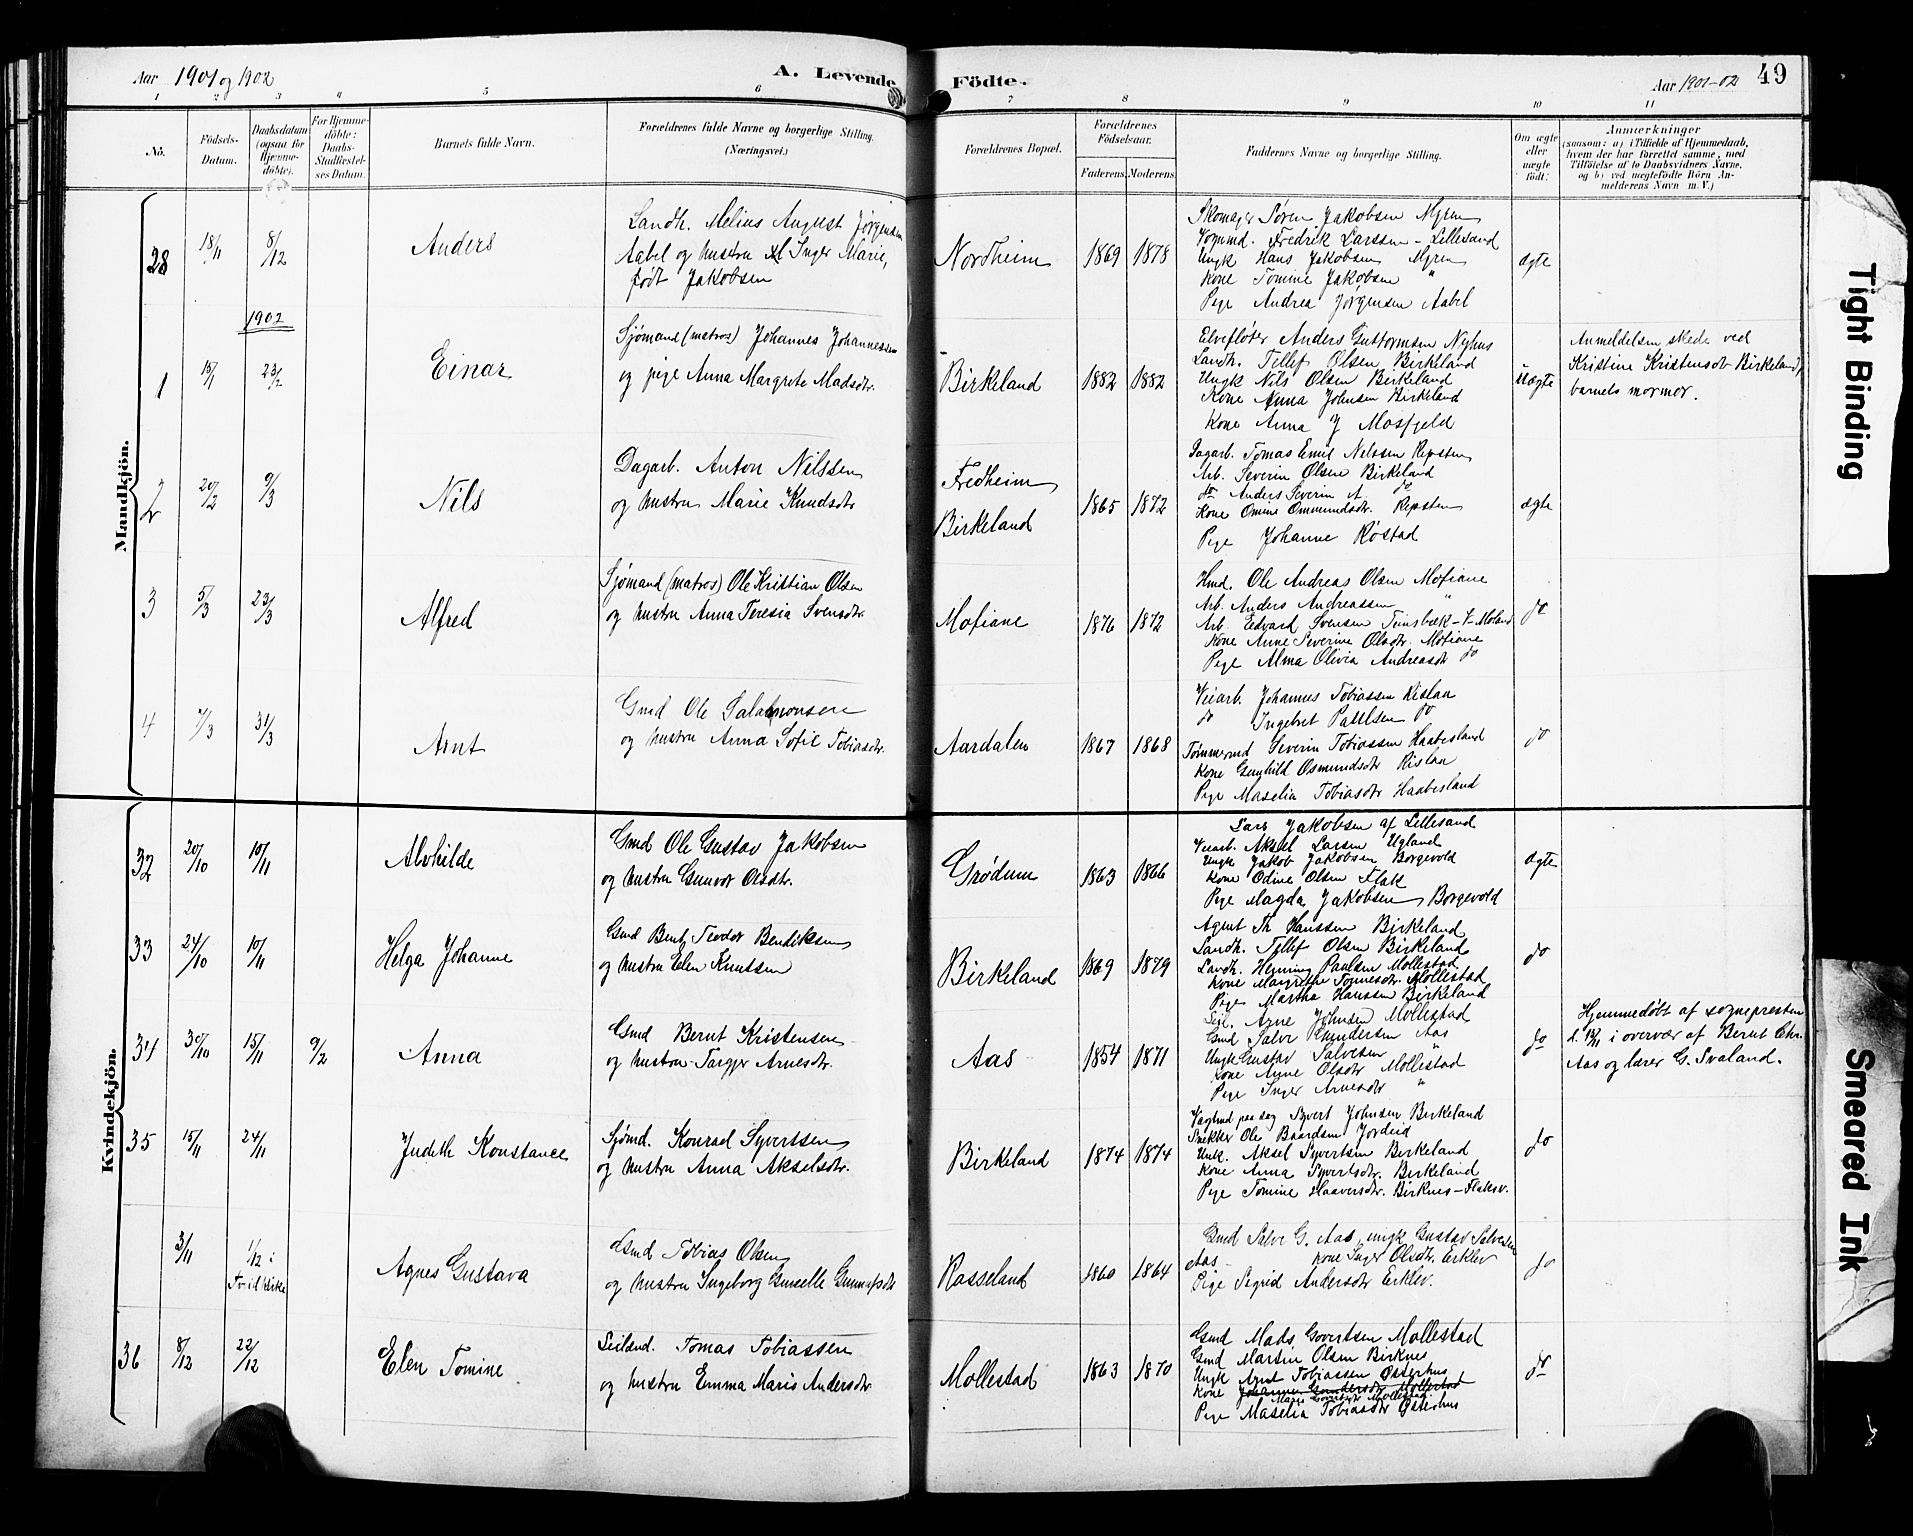 Aar 1901 og 1902
A. Levende Födte.
Aar 1901-02
49
1 2 3 4 5 6 7 8 9 10 11
No.
Födsels-
Datum.
Daabsdatum
(ogsaa for
Hjemme-
döbte).
For Hjemme-
döbte:
Daabs-
Stadfæstel-
ses Datum.
Barnets fulde Navn.
Forældrenes fulde Navne og borgerlige Stilling.
(Næringsvei.)
Forældrenes Bopæl.
Forældrenes
Födselsaar.
Faderens. Moderens.
Faddernes Navne og borgerlige Stilling.
Om ægte
eller
uægte
født.
Anmærkninger
(saasom: a) i Tilfælde af Hjemmedaab,
hvem der har forrettet samme, med
Tilföielse af to Daabsvidners Navne,
og b) ved uægtefödte Börn An-
melderens Navn m. V.)
Mandkjön.
28
18/11
8/12
Anders
Landh. Melius August Jørgensen
Aabel og hustru Inger Marie,
født Jakobsen
Nordheim
1869
1878
Skomager Søren Jakobsen Myren
Vognmd. Fredrik Larssen - Lillesand
Ungk Hans Jakobsen Myren
Kone Tomine Jakobsen "
Pige Andrea Jørgensen Aabel
ægte
1902
1
15/1
23/2
Einar
Sjømand (matros) Johannes Johannessen
og pige Anna Margrete Madsdtr.
Birkeland
1882
1882
Elvefløter Anders Guttormsen Nyhus
Landh. Tellef Olsen Birkeland
Ungk Nils Olsen Birkeland
Kone Anna Johnsen Birkeland
Kone Anna J Mosfjeld
Uægte
Anmeldelsen skede ved
Kristine Kristensdtr Birkeland,
barnets mormor.
2
20/2
9/3
Nils
Dagarb. Anton Nilssen
og hustru Marie Knudsdtr
Fredheim
Birkeland
1865
1872
Dagarb. Tomas Emil Nelssen Repsten
Arb. Severin Olsen Birkeland
do Anders Severin A. do
Kone Omine Ommundsdtr. Repsten
Pige Johanne Røstad
ægte
3
5/3
23/3
Alfred
Sjømand (matros) Ole Kristian Olsen
og hustru Anna Teresia Svensdtr
Mofiane
1876
1872
Hmd. Ole Andreas Olsen Mofiane
Arb. Anders Andreassen "
Arb. Edvard Svensen Tunsbæk - V-Moland
Kone Anne Severine Olsdtr. Mofiane
Pige Alma Olivia Andreasdtr do
do
4
7/3
31/3
Arnt
Gmd Ole Salamonsen
og hustru Anna Sofie Tobiasdtr.
Aardalen
1867
1868
Veiarb. Johannes Tobiassen Rislaa
do Ingebret Paulsen do
Tømmermd Severin Tobiassen Haabesland
Kone Gunhild Osmundsdtr Rislaa
Pige Maselia Tobiasdtr Haabesland
do
Kvindekjön.
32
20/10
10/11
Alvhilde
Gmd Ole Gustav Jakobsen
og hustru Gunvor Olsdtr.
Grødum
1863
1866
Lars Jakobsen af Lillesand
Veiarb. Aksel Larsen Ugland
Ungk Jakob Jakobsen Borgevold
Kone Odine Olsen Flak
Pige Magda Jakobsen Borgevold
ægte
33
24/10
10/11
Helga Johanne
Gmd Bent Teodor Bendiksen
og hustru Elen Knutsen
Birkeland
1869
1879
Agent Th Hanssen Birkeland
Landh. Tellef Olsen Birkeland
Landh. Henning Paulsen Mollestad
Kone Margrethe Tønnesdtr. Mollestad
Pige Martha Hanssen Birkeland
do
34
30/10
15/11
9/2
Anna
Gmd Bernt Kristensen
og hustru Targjer Arnesdtr.
Aas
1854
1871
Seil. Arne Johnsen Mollestad
Gmd Salve Gundersen Aas
Ungk Gustav Salvesen "
Kone Anne Olsdtr Mollestad
Pige Inger Arnesdtr "
do
Hjemmedøbt af sognepresten
d. 15/11 i overvær af Bernt Chr.
Aas og lærer G. Svaland.
35
15/11
24/11
Judith Konstance
Sjømd. Konrad Syvertsen
og hustru Anna Akselsdtr.
Birkeland
1874
1874
Vagtmd paa sag Syvert Johnsen Birkeland
Snekker Ole Baardsen Jordeid
Unk. Aksel Syvertsen Birkeland
Kone Anna Syvertsdtr. Birkeland
Pige Tomine Haaversdtr. Birknes - Flaksv.
do
3/11
1/12 i
Frid kirke
Agnes Gustava
Gmd Tobias Olsen
og hustru Ingeborg Gurselle Gunnufsdtr
Rosseland
1860
1864
Gmd Salve G. Aas, ungk Gustav Salvesen
Aas - Kone Inger Olsdtr. Erklev
Pige Sigrid Andersdtr Erklev.
do
36
8/12
22/12
Elen Tomine
Seilsmd. Tomas Tobiassen
og hustru Emma Maris Andersdtr
Mollestad
1863
1870
Gmd Mads Govertsen Mollestad
Gmd Martin Olsen Birknes
Ungk Agnt Tobiassen Østerhus
Kone Johanne Gundersdtr Mollestad
Pige Maselia Tobiasdtr Østerhus
do
Tight Binding
Smeared Ink